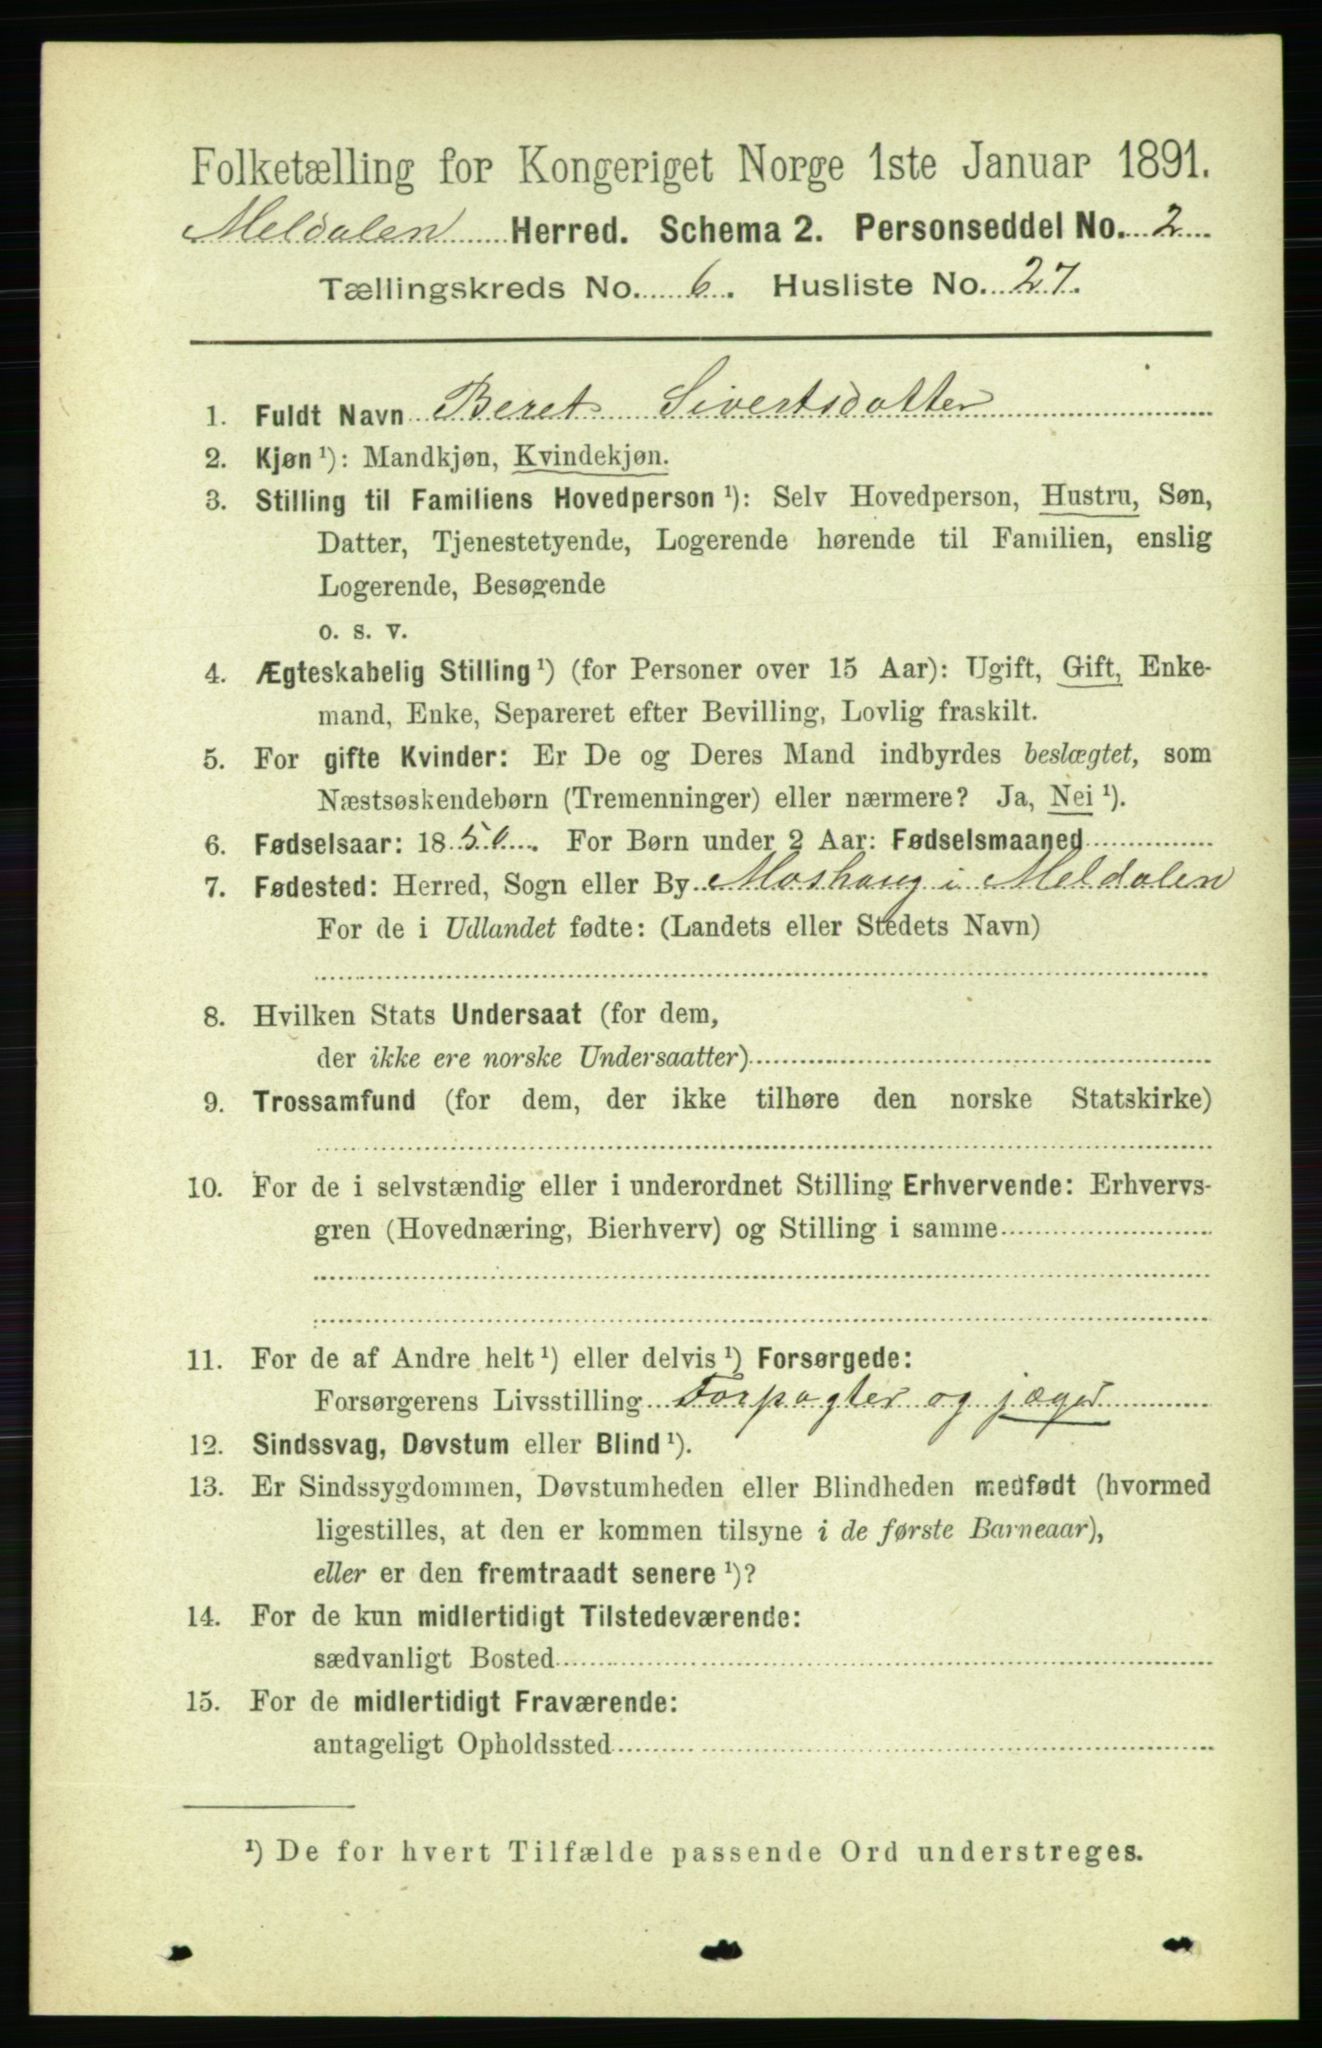 Folketælling for Kongeriget Norge 1ste Januar 1891.
Meldalen Herred. Schema 2. Personseddel No. 2
Tællingskreds No. 6. Husliste No. 27.
1. Fuldt Navn Beret Sivertsdatter
2. Kjøn ¹): Mandkjøn, Kvindekjøn.
3. Stilling til Familiens Hovedperson ¹): Selv Hovedperson, Hustru, Søn,
Datter, Tjenestetyende, Logerende hørende til Familien, enslig
Logerende, Besøgende
o. s. v.
4. Ægteskabelig Stilling ¹) (for Personer over 15 Aar): Ugift, Gift, Enke-
mand, Enke, Separeret efter Bevilling, Lovlig fraskilt.
5. For gifte Kvinder: Er De og Deres Mand indbyrdes beslægtet, som
Næstsøskendebørn (Tremenninger) eller nærmere? Ja, Nei ¹).
6. Fødselsaar: 1850. For Børn under 2 Aar: Fødselsmaaned
7. Fødested: Herred, Sogn eller By Moshaug i Meldalen
For de i Udlandet fødte: (Landets eller Stedets Navn)
8. Hvilken Stats Undersaat (for dem,
der ikke ere norske Undersaatter)
9. Trossamfund (for dem, der ikke tilhøre den norske Statskirke)
10. For de i selvstændig eller i underordnet Stilling Erhvervende: Erhvervs-
gren (Hovednæring, Bierhverv) og Stilling i samme
11. For de af Andre helt ¹) eller delvis ¹) Forsørgede:
Forsørgerens Livsstilling Forpagter og jæger
12. Sindssvag, Døvstum eller Blind ¹).
13. Er Sindssygdommen, Døvstumheden eller Blindheden medfødt (hvormed
ligestilles, at den er kommen tilsyne i de første Barneaar),
eller er den fremtraadt senere ¹)?
14. For de kun midlertidigt Tilstedeværende:
sædvanligt Bosted
15. For de midlertidigt Fraværende:
antageligt Opholdssted
¹) De for hvert Tilfælde passende Ord understreges.